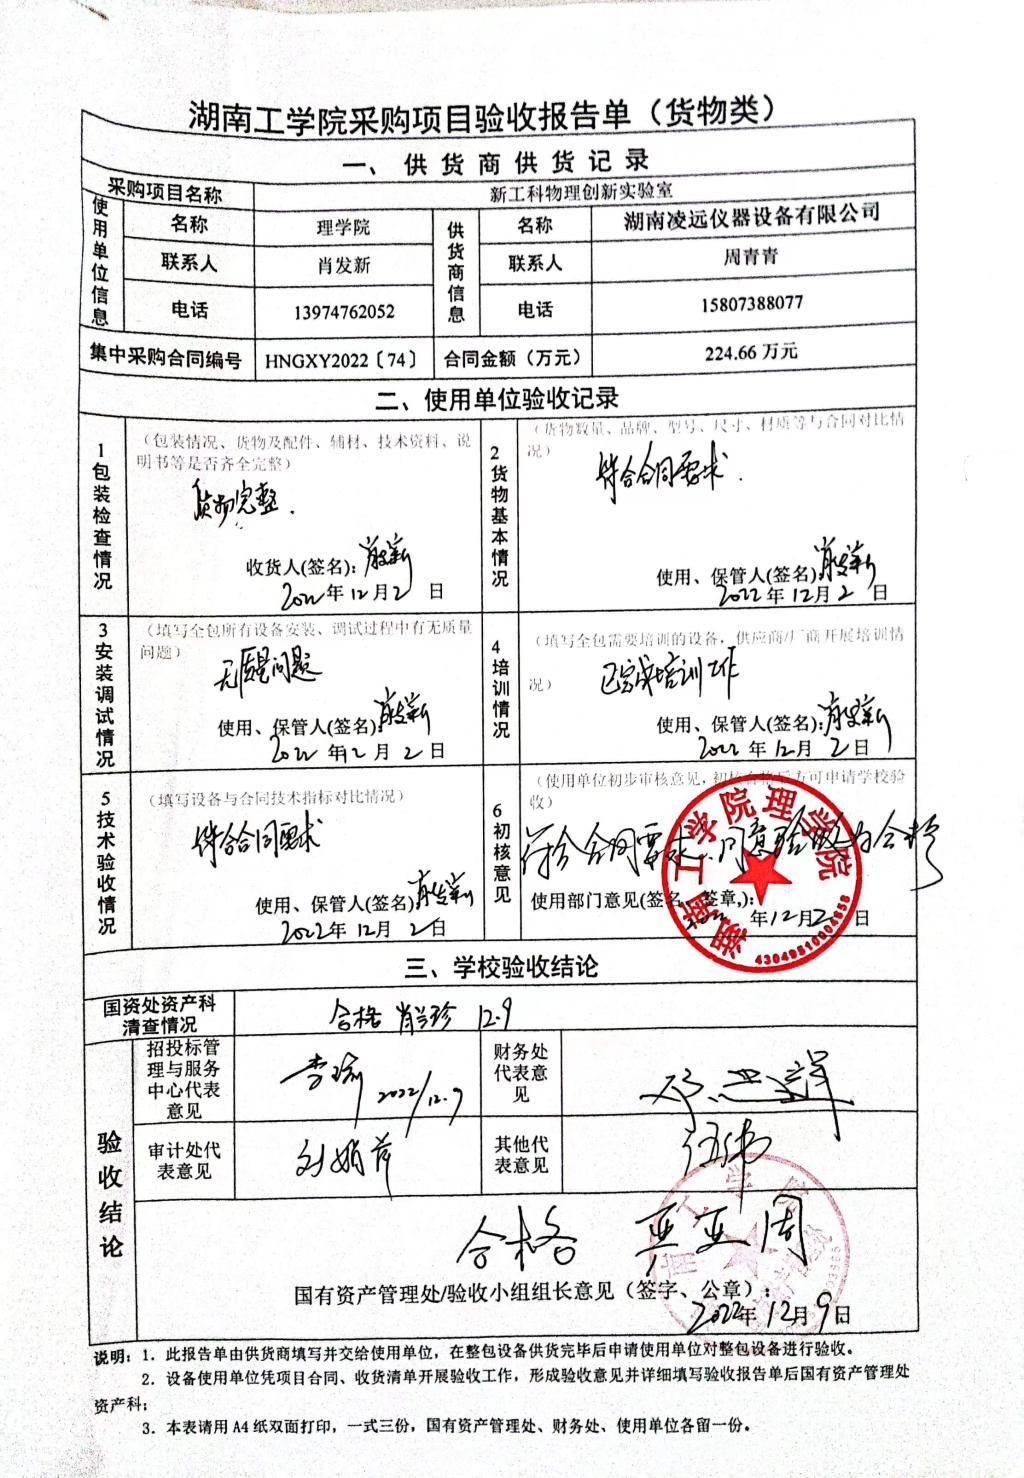 湖南工学院采购项目验收报告单（货物类）
一、供货商供货记录
采购项目名称 新工科物理创新实验室
使用单位信息 名称 理学院 供货商信息 名称 湖南凌远仪器设备有限公司
联系人 肖发新 联系人 周青青
电话 13974762052 电话 15807388077
集中采购合同编号 HNGXY2022〔74〕 合同金额（万元） 224.66 万元
二、使用单位验收记录
1包装检查情况
（包装情况、货物及配件、辅材、技术资料、说
明书等是否齐全完整）
货物完整.
收货人(签名): 肖发新
2022年12月2日
2货物基本情况
（货物数量、品牌、型号、尺寸、材质等与合同对比情
况）
符合合同要求.
使用、保管人(签名): 肖发新
2022年12月2日
3安装调试情况
（填写全包所有设备安装、调试过程中有无质量
问题）
无质量问题
使用、保管人(签名): 肖发新
2022年12月2日
4培训情况
（填写全包需要培训的设备，供应商/厂商开展培训情
况）
已完成培训工作
使用、保管人(签名): 肖发新
2022年12月2日
5技术验收情况
（填写设备与合同技术指标对比情况）
符合合同要求
使用、保管人(签名): 肖发新
2022年12月2日
6初核意见
（使用单位初步审核意见，初核合格后方可申请学校验
收）
符合合同要求，同意验收为合格
使用部门意见(签名、签章,):
2022年12月2日
湖南工学院理学院
43049510004858
三、学校验收结论
国资处资产科
清查情况
合格 肖兴珍 12.9
验收结论
招投标管
理与服务
中心代表
意见
李瑜 2022/12.9
财务处
代表意
见
审计处代
表意见
刘娟芳
其他代
表意见
伍伟
合格
国有资产管理处/验收小组组长意见（签字、公章）:
2022年12月9日
说明: 1. 此报告单由供货商填写并交给使用单位，在整包设备供货完毕后申请使用单位对整包设备进行验收。
2. 设备使用单位凭项目合同、收货清单开展验收工作，形成验收意见并详细填写验收报告单后国有资产管理处
资产科;
3. 本表请用 A4 纸双面打印，一式三份，国有资产管理处、财务处、使用单位各留一份。